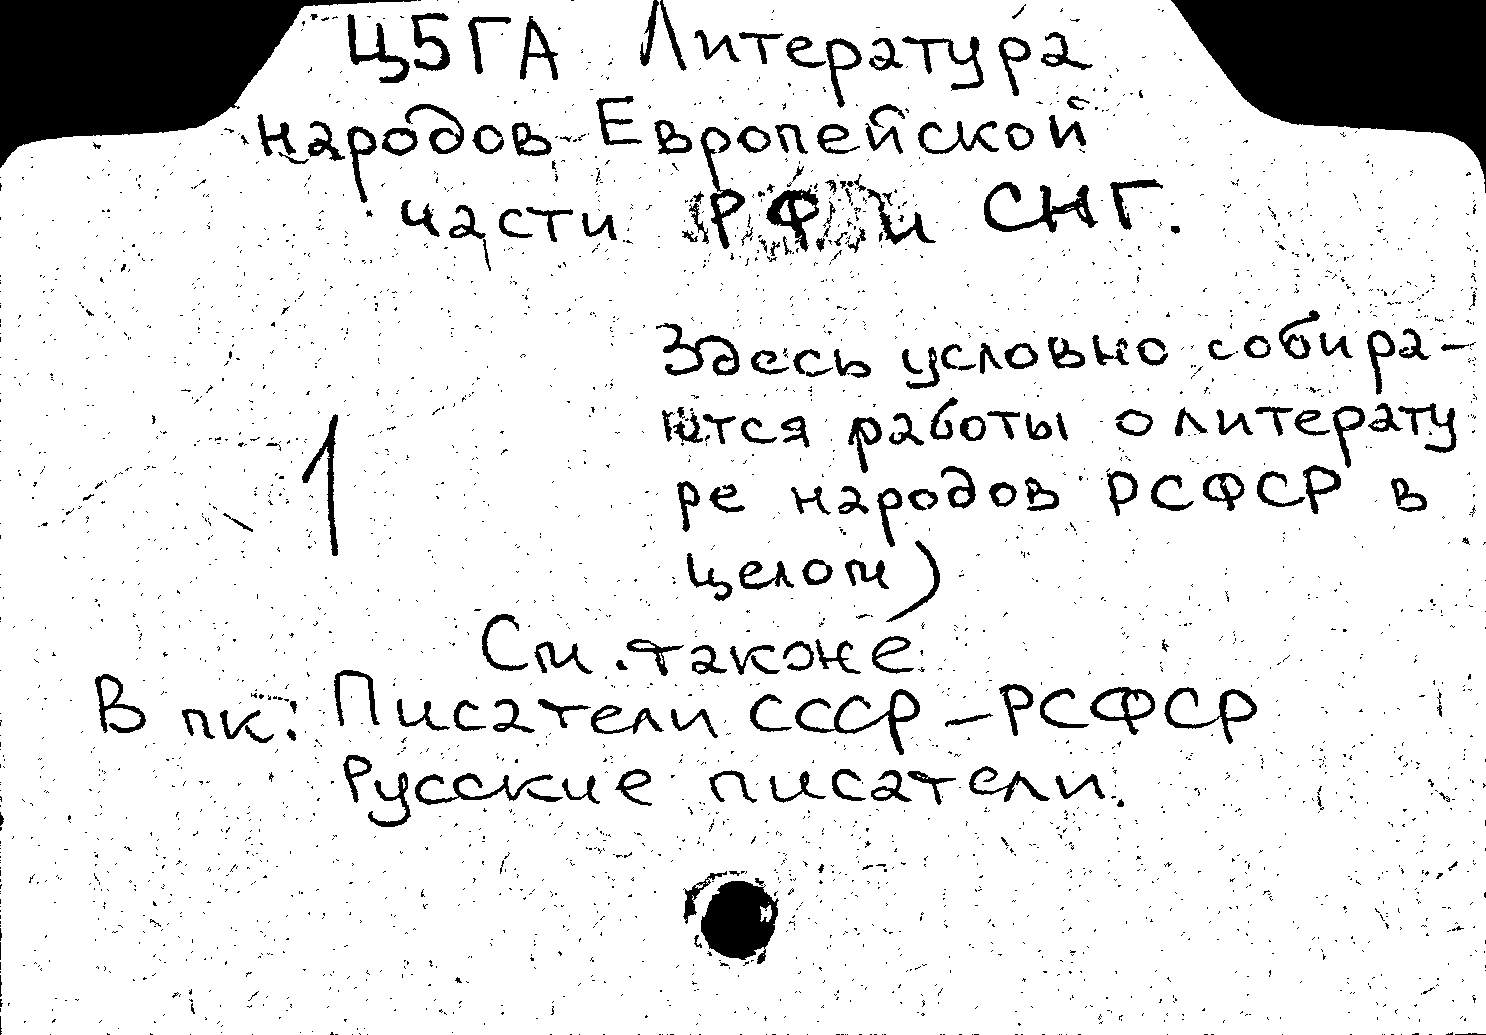 Ц5ГА Литература
народов Европейской
части РФ и СНГ.
Здесь условно собира-
ются работы о литерату
1
ре народов РСФСР в
целом)
См. также
В пк: Писатели СССР – РСФСР
Русские писатели.